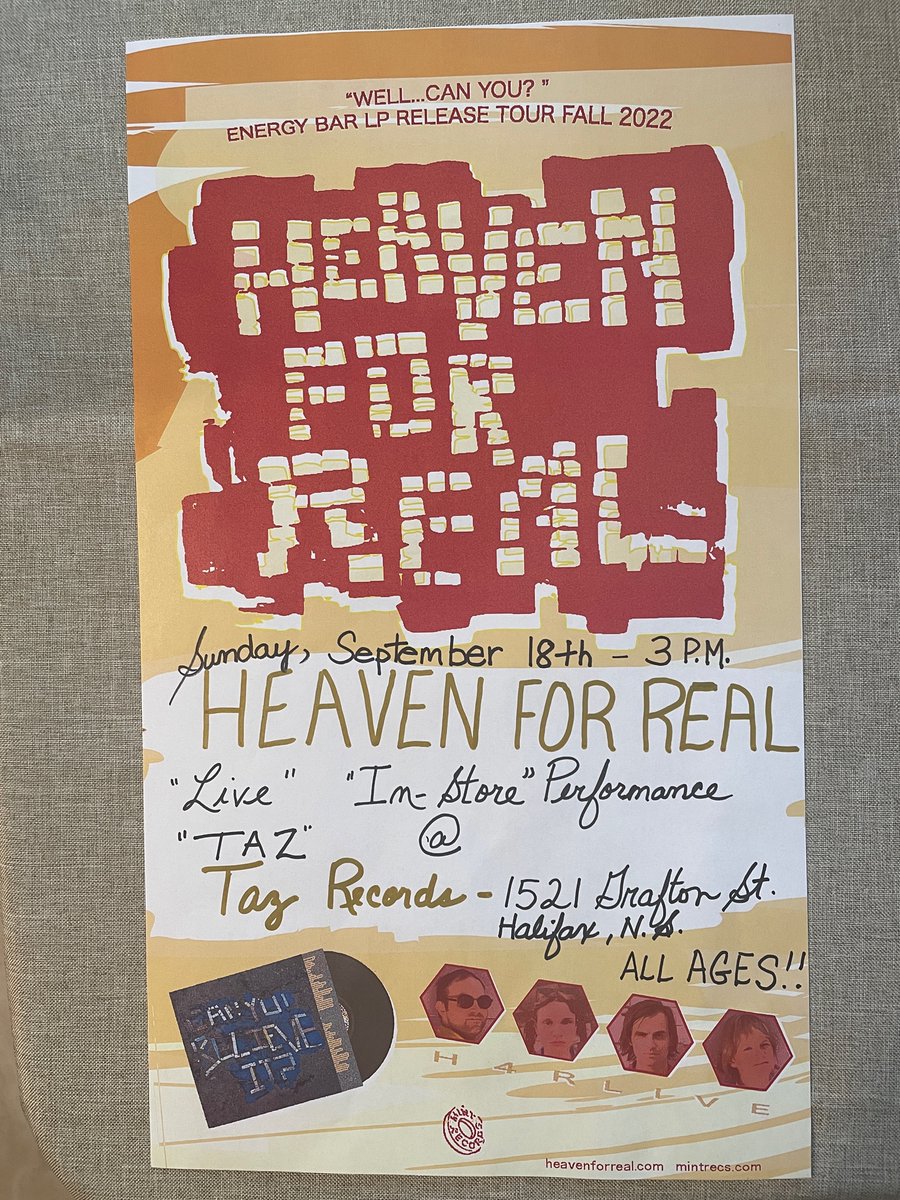 "WELL...CAN YOU?"
ENERGY BAR LP RELEASE TOUR FALL 2022
HEAVEN
FOR
REAL
Sunday, September 18th - 3 P.M.
HEAVEN FOR REAL
"Live" "In-Store" Performance
"TAZ" @
Taz Records - 1521 Grafton St.
Halifax, N.S.
ALL AGES!!
CAN YOU
BELIEVE
IT?
H4RLIVE
MINT RECORDS
heavenforreal.com mintrecs.com